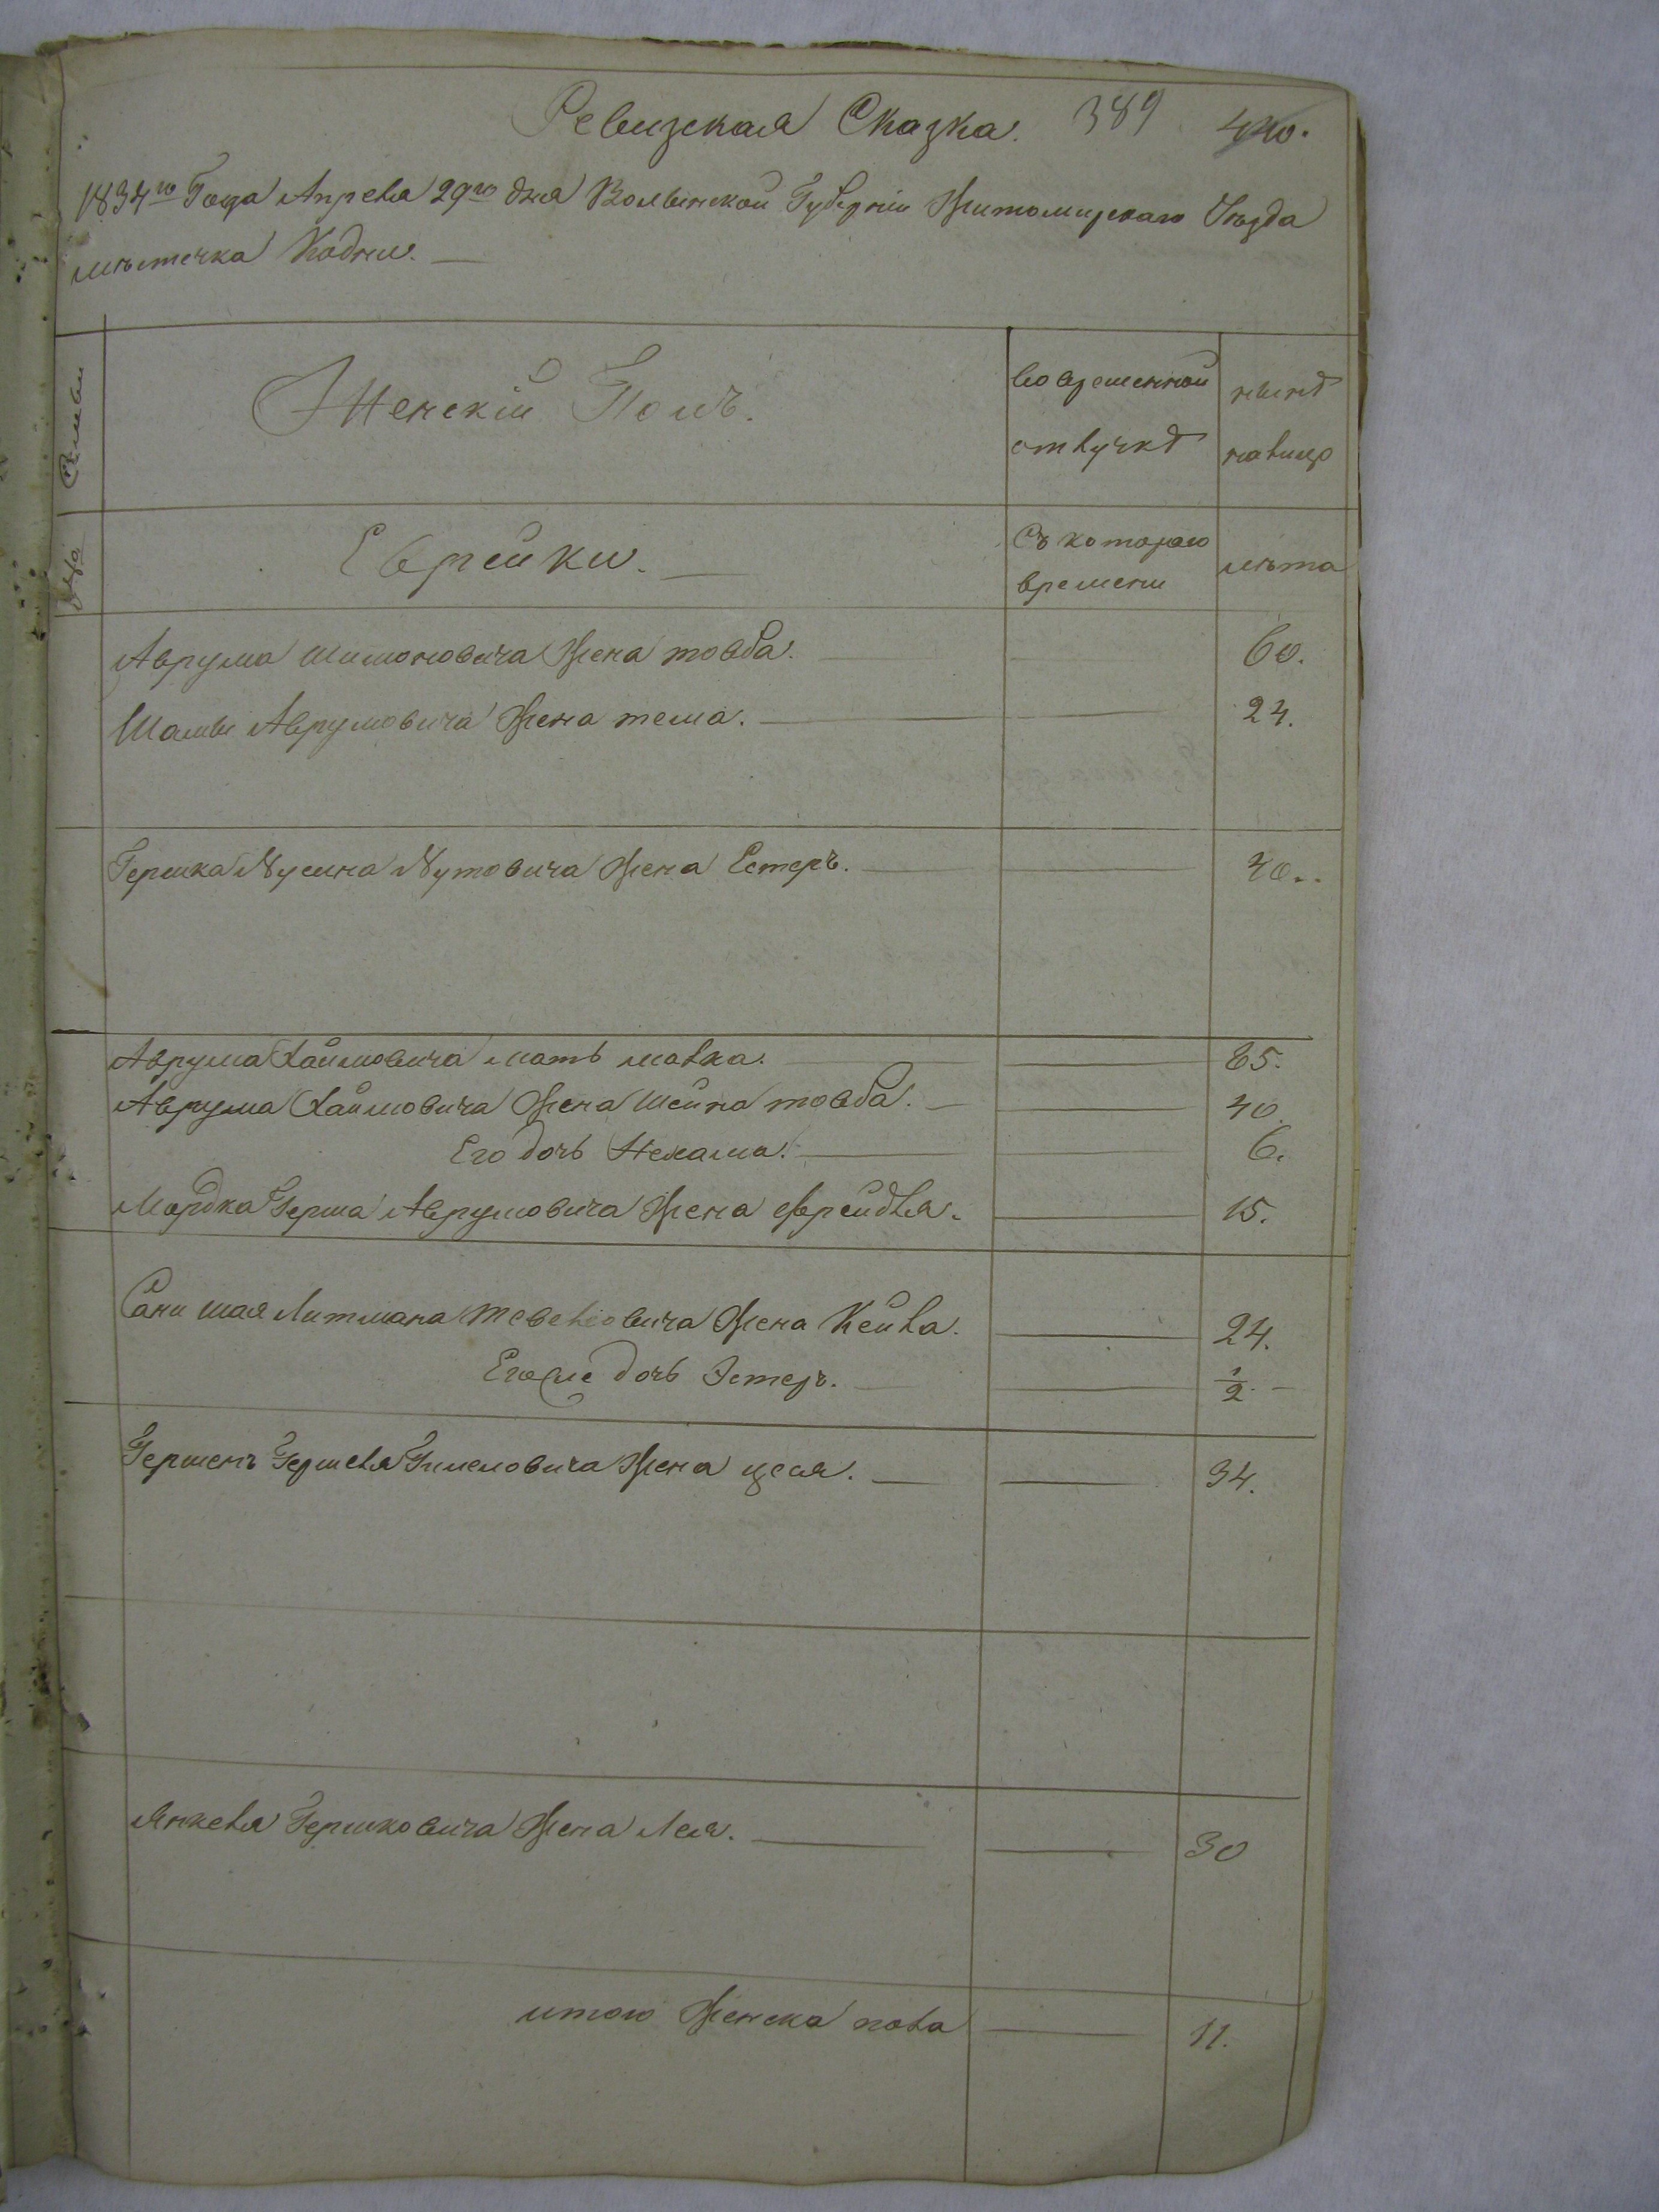 Ревизская Сказка. 389 440.
1834го Года Апреля 29го дня Волынской Губерніи Житомирскаго Уѣзда
мѣстечка Кодни.
Семьи
Женскій Полъ.
во временной
отлучкѣ
нынѣ
налицо
Еврейки.
Съ котораго
времени
лѣта
Аврума Шимоновича Жена товба. 60.
Шамы Аврумовича Жена тема. 24.
Гершка Нусина Нутовича Жена Естеръ. 40.
Аврума Хаймовича мать малка. 65.
Аврума Хаймовича Жена Шейна товба. 40.
Его дочь Нехама. 6.
Мордка Герша Аврумовича Жена фрейдля. 15.
Сани шая Литмана Тевелиовича Жена Кейла. 24.
Егоже дочь Эстеръ. 1/2.
Гершенъ Гершеля Гимеловича Жена цеся. 34.
Янкеля Гершковича Жена Лея. 30
итого Женска пола 11.